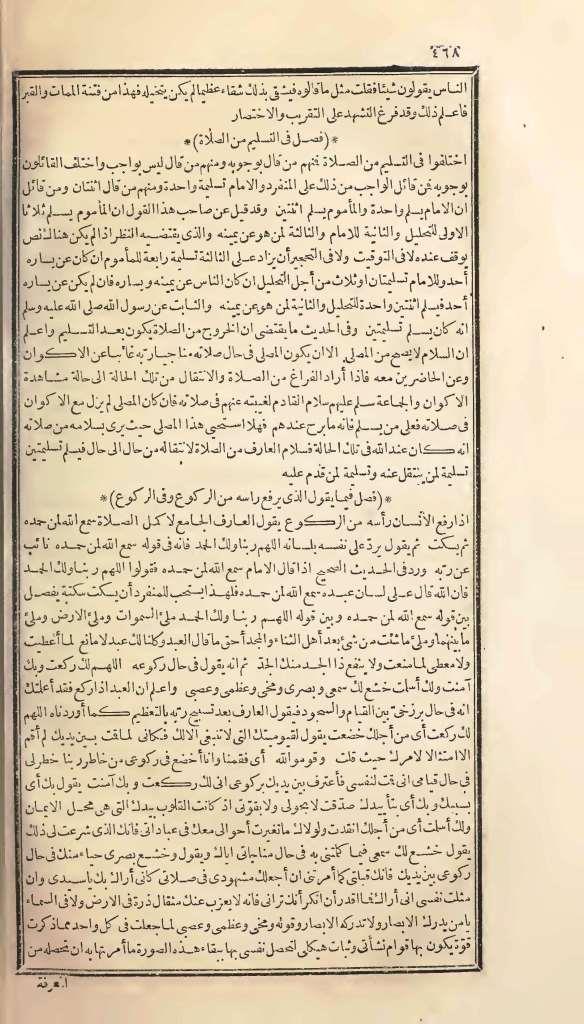 ٤٦٨
الناس يقولون شيئا فقلت مثل ما قالوه فيشقى بذلك شقاء عظيما لم يكن يتخيله فهذا من فتنة الممات والقبر
فاعلم ذلك وقد فرغ التشهد على التقريب والاختصار
*(فصل فى التسليم من الصلاة)*
اختلفوا فى التسليم من الصلاة فمنهم من قال بوجوبه ومنهم من قال ليس بواجب واختلف القائلون
بوجوبه فمن قائل الواجب من ذلك على المنفرد والامام تسليمة واحدة ومنهم من قال اثنتان ومن قائل
ان الامام يسلم واحدة والمأموم يسلم اثنتين وقد قيل عن صاحب هذا القول ان المأموم يسلم ثلاثا
الاولى للتحليل والثانية للامام والثالثة لمن هو عن يمينه والذى يقتضيه النظر اذ لم يكن هناك نص
يوقف عنده لا فى التوقيت ولا فى التحجير أن يزاد على الثالثة تسليمة رابعة للمأموم ان كان عن يساره
أحد وللامام تسليمتان او ثلاث من أجل التحليل ان كان الناس عن يمينه ويساره فان لم يكن عن يساره
أحد فيسلم اثنتين واحدة للتحليل والثانية لمن هو عن يمينه والثابت عن رسول الله صلى الله عليه وسلم
انه كان يسلم تسليمتين وفى الحديث ما يقتضى ان الخروج من الصلاة يكون بعد التسليم واعلم
ان السلام لا يصح من المصلى الا ان يكون المصلى فى حال صلاته مناجيا ربه غائبا عن الاكوان
وعن الحاضرين معه فاذا أراد الفراغ من الصلاة والانتقال من تلك الحالة الى حالة مشاهدة
الاكوان والجماعة سلم عليهم سلام القادم لغيبته عنهم فى صلاته فان كان المصلى لم يزل مع الاكوان
فى صلاته فعلى من يسلم فانه ما برح عندهم فهلا استحيى هذا المصلى حيث يرى بسلامه من صلاته
انه كان عند الله فى تلك الحالة فسلام العارف من الصلاة لانتقاله من حال الى حال فيسلم تسليمتين
تسليمة لمن ينتقل عنه وتسليمة لمن قدم عليه
*(فصل فيما يقول الذى يرفع راسه من الركوع وفى الركوع)*
اذا رفع الانسان رأسه من الركوع يقول العارف الجامع لا كمل الصلاة سمع الله لمن حمده
ثم يسكت ثم يقول يردّ على نفسه بلسانه اللهم ربنا ولك الحمد فانه فى قوله سمع الله لمن حمده نائب
عن ربه ورد فى الحديث الصحيح اذا قال الامام سمع الله لمن حمده فقولوا اللهم ربنا ولك الحمد
فان الله قال على لسان عبده سمع الله لمن حمده فلهذا يستحب للمنفرد أن يسكت سكتة يفصل
بين قوله سمع الله لمن حمده وبين قوله اللهم ربنا ولك الحمد ملئ السموات وملئ الارض وملئ
ما بينهما وملئ ما شئت من شئ بعد أهل الثناء والمجد أحق ما قال العبد وكلنا لك عبد لا مانع لما أعطيت
ولا معطى لما منعت ولا ينفع ذا الجد منك الجدّ ثم انه يقول فى حال ركوعه اللهم لك ركعت وبك
آمنت ولك أسلمت خشع لك سمعى وبصرى ومخى وعظمى وعصبى واعلم ان العبد اذا ركع فقد أعلمتك
انه فى حال برزخىّ بين القيام والسجود فيقول العارف بعد تسبيح ربه بالتعظيم كما أوردناه اللهم
لك ركعت أى من أجلك خضعت يقول لقيوميتك التى لا تنبغى الا لك فكانى لما قت بين يديك لم أقم
الا امتثالا لامرك حيث قلت وقوموالله أى فقمنا وانا أخضع فى ركوعى من خاطر ربنا خطر لى
فى حال قيامى انى قت لنفسى فأعترف بين يديك بركوعى انى لك ركعت وبك آمنت يقول بك أى
بسببك وبك أى بتأييدك صدّقت لا بحولى ولا بقوّتى اذ كانت القلوب بيدك التى هى محل الايمان
ولك أسلمت أى من أجلك انقدت ولولاك ما تغيرت أحوالى معك فى عباداتى فانك الذى شرعت لى ذلك
يقول خشع لك سمعى فيما كلمتنى به فى حال مناجاتى اياك ويقول وخشع بصرى حياء منك فى حال
ركوعى بين يديك فانك قبلتى كما أمرتنى ان أجعلك مشهودى فى صلاتى كانى أراك بك يا سيدى وان
مثلت نفسى انى أراك فما اقدر أن انكر أنك ترانى فانه لا يعزب عنك مثقال ذرة فى الارض ولا فى السماء
يا من يدرك الابصار ولا تدركه الابصار وقوله ومخى وعظمى وعصبى لما جعلت فى كل واحد مما ذكرت
قوّة يكون بها قوام نشأتى وثبات هيكلى لتحصل نفسى بها ببقاء هذه الصورة ما أمرتها به ان تحصله من
المعرفة